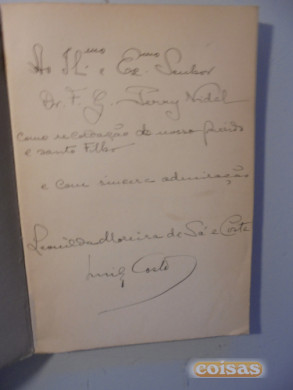 Ao Ill.mo e Ex.mo Senhor
Dr. F. G. Penny
como recordação do nosso querido
e santo Filho
e com sincera admiração
Leonilda Moreira de Sá e Costa
Luiz Costa
coisas